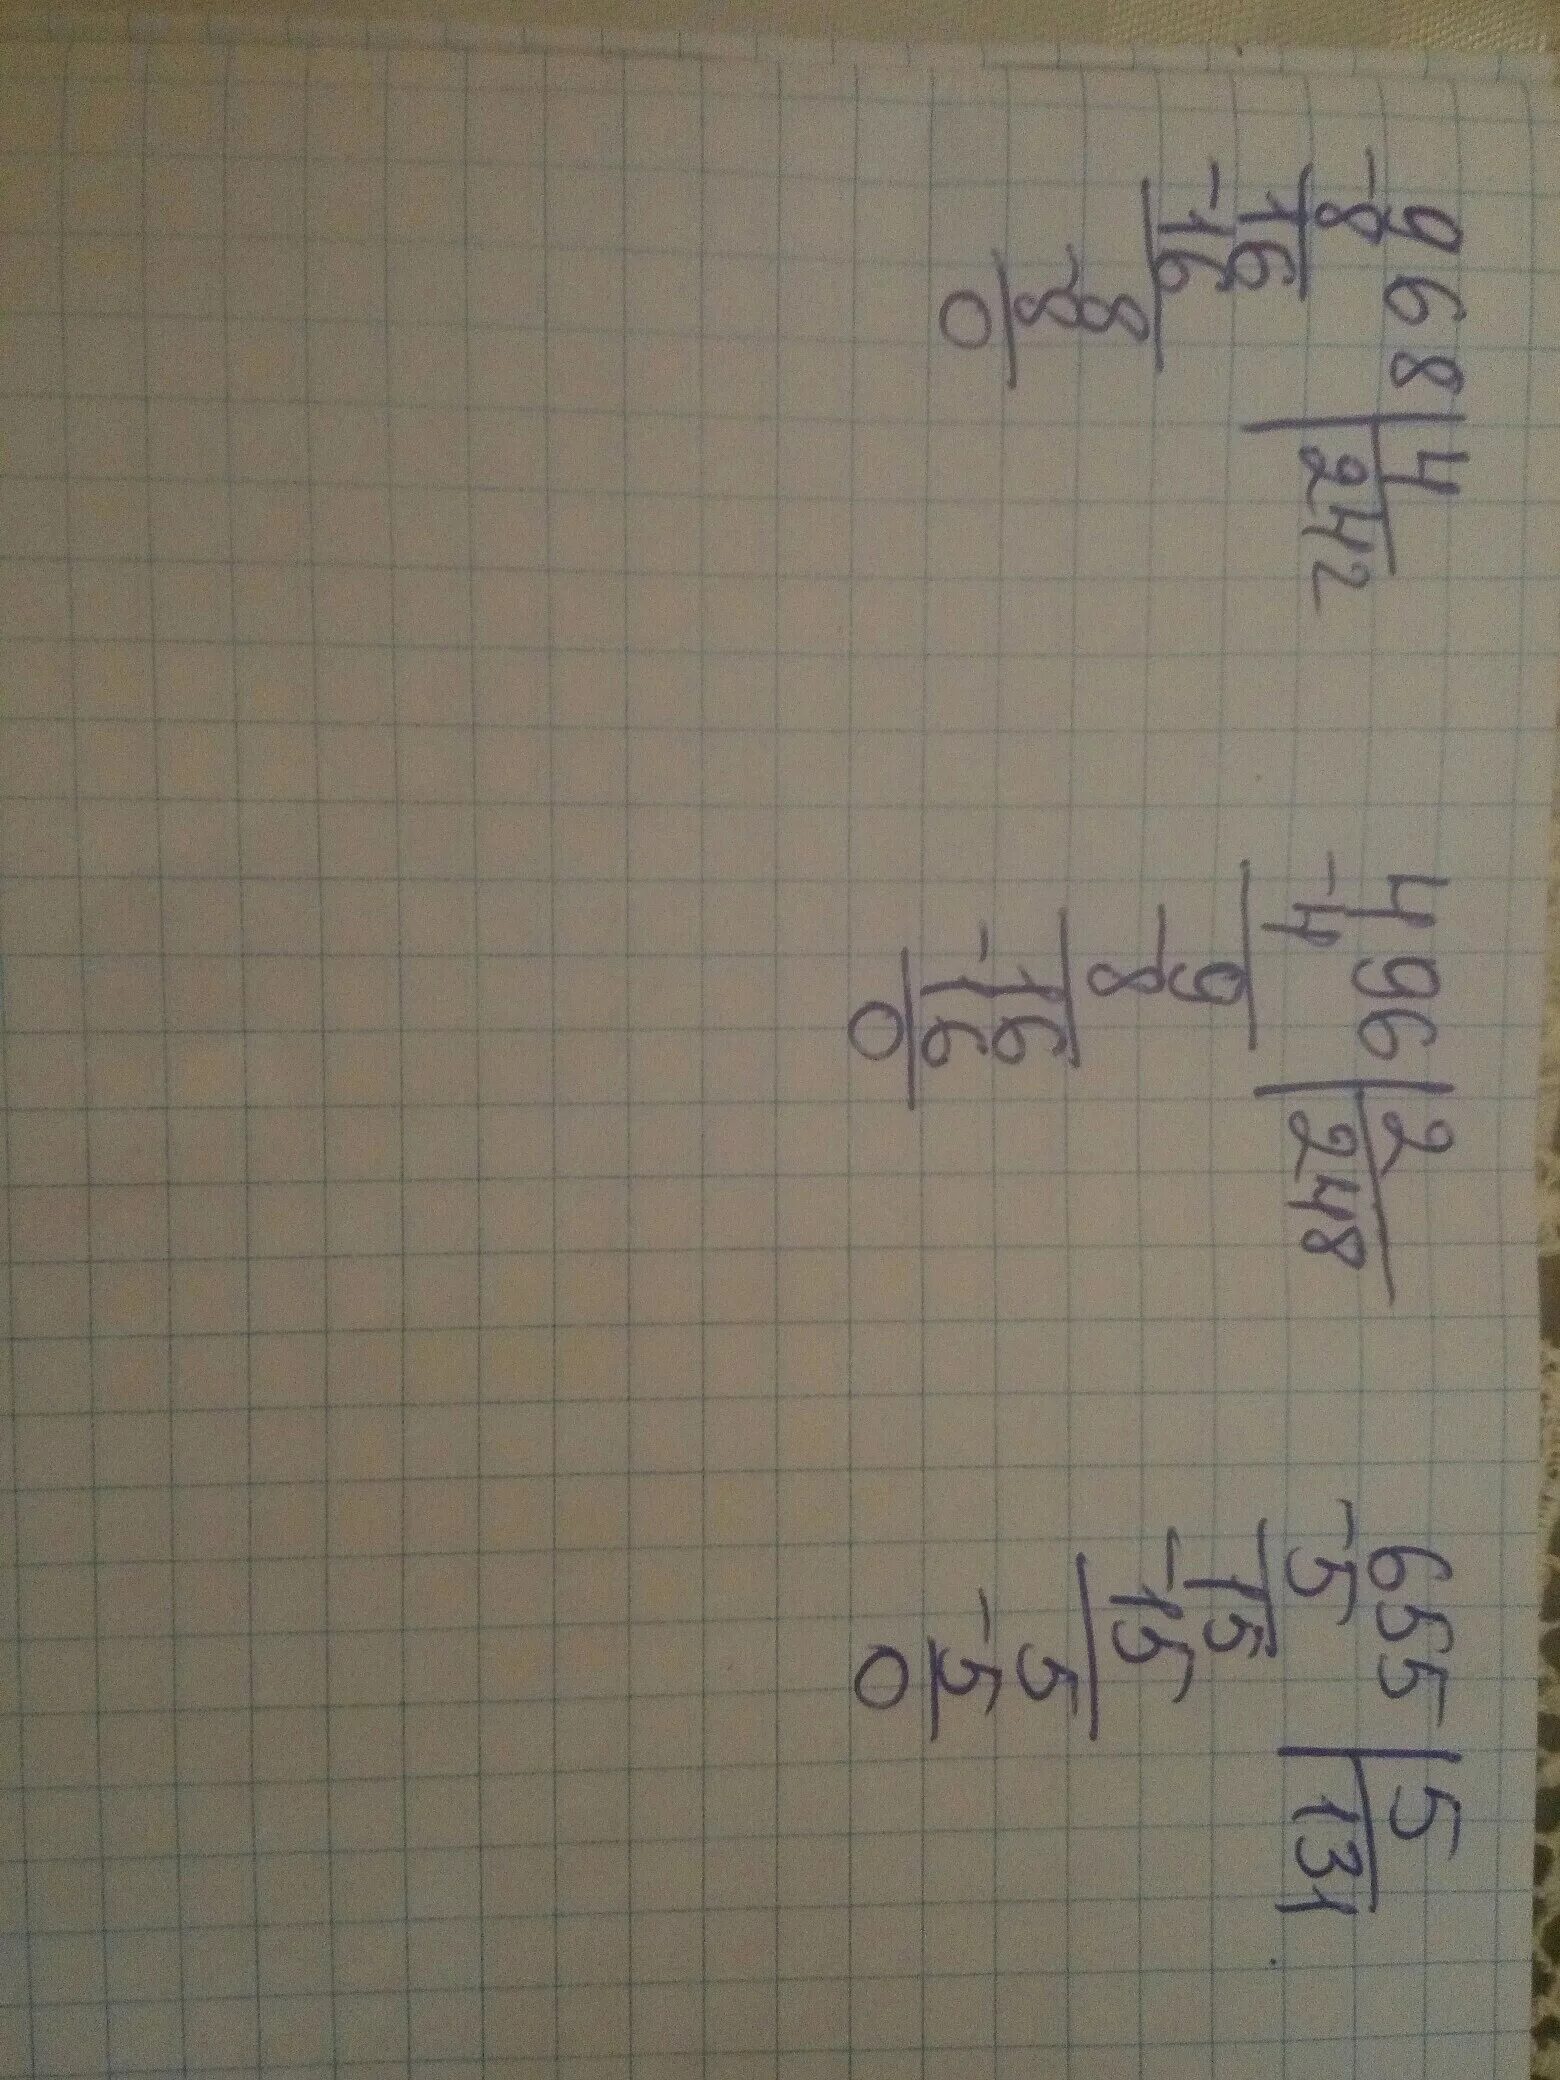 968|4
-8 242
16
-16
8
-8
0
496|2
-4 248
9
-8
16
-16
0
655|5
-5 131
15
-15
5
-5
0